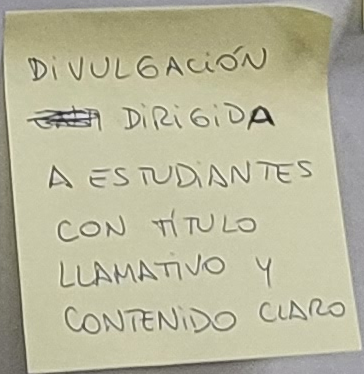 DIVULGACIÓN
DIRIGIDA
A ESTUDIANTES
CON TÍTULO
LLAMATIVO Y
CONTENIDO CLARO